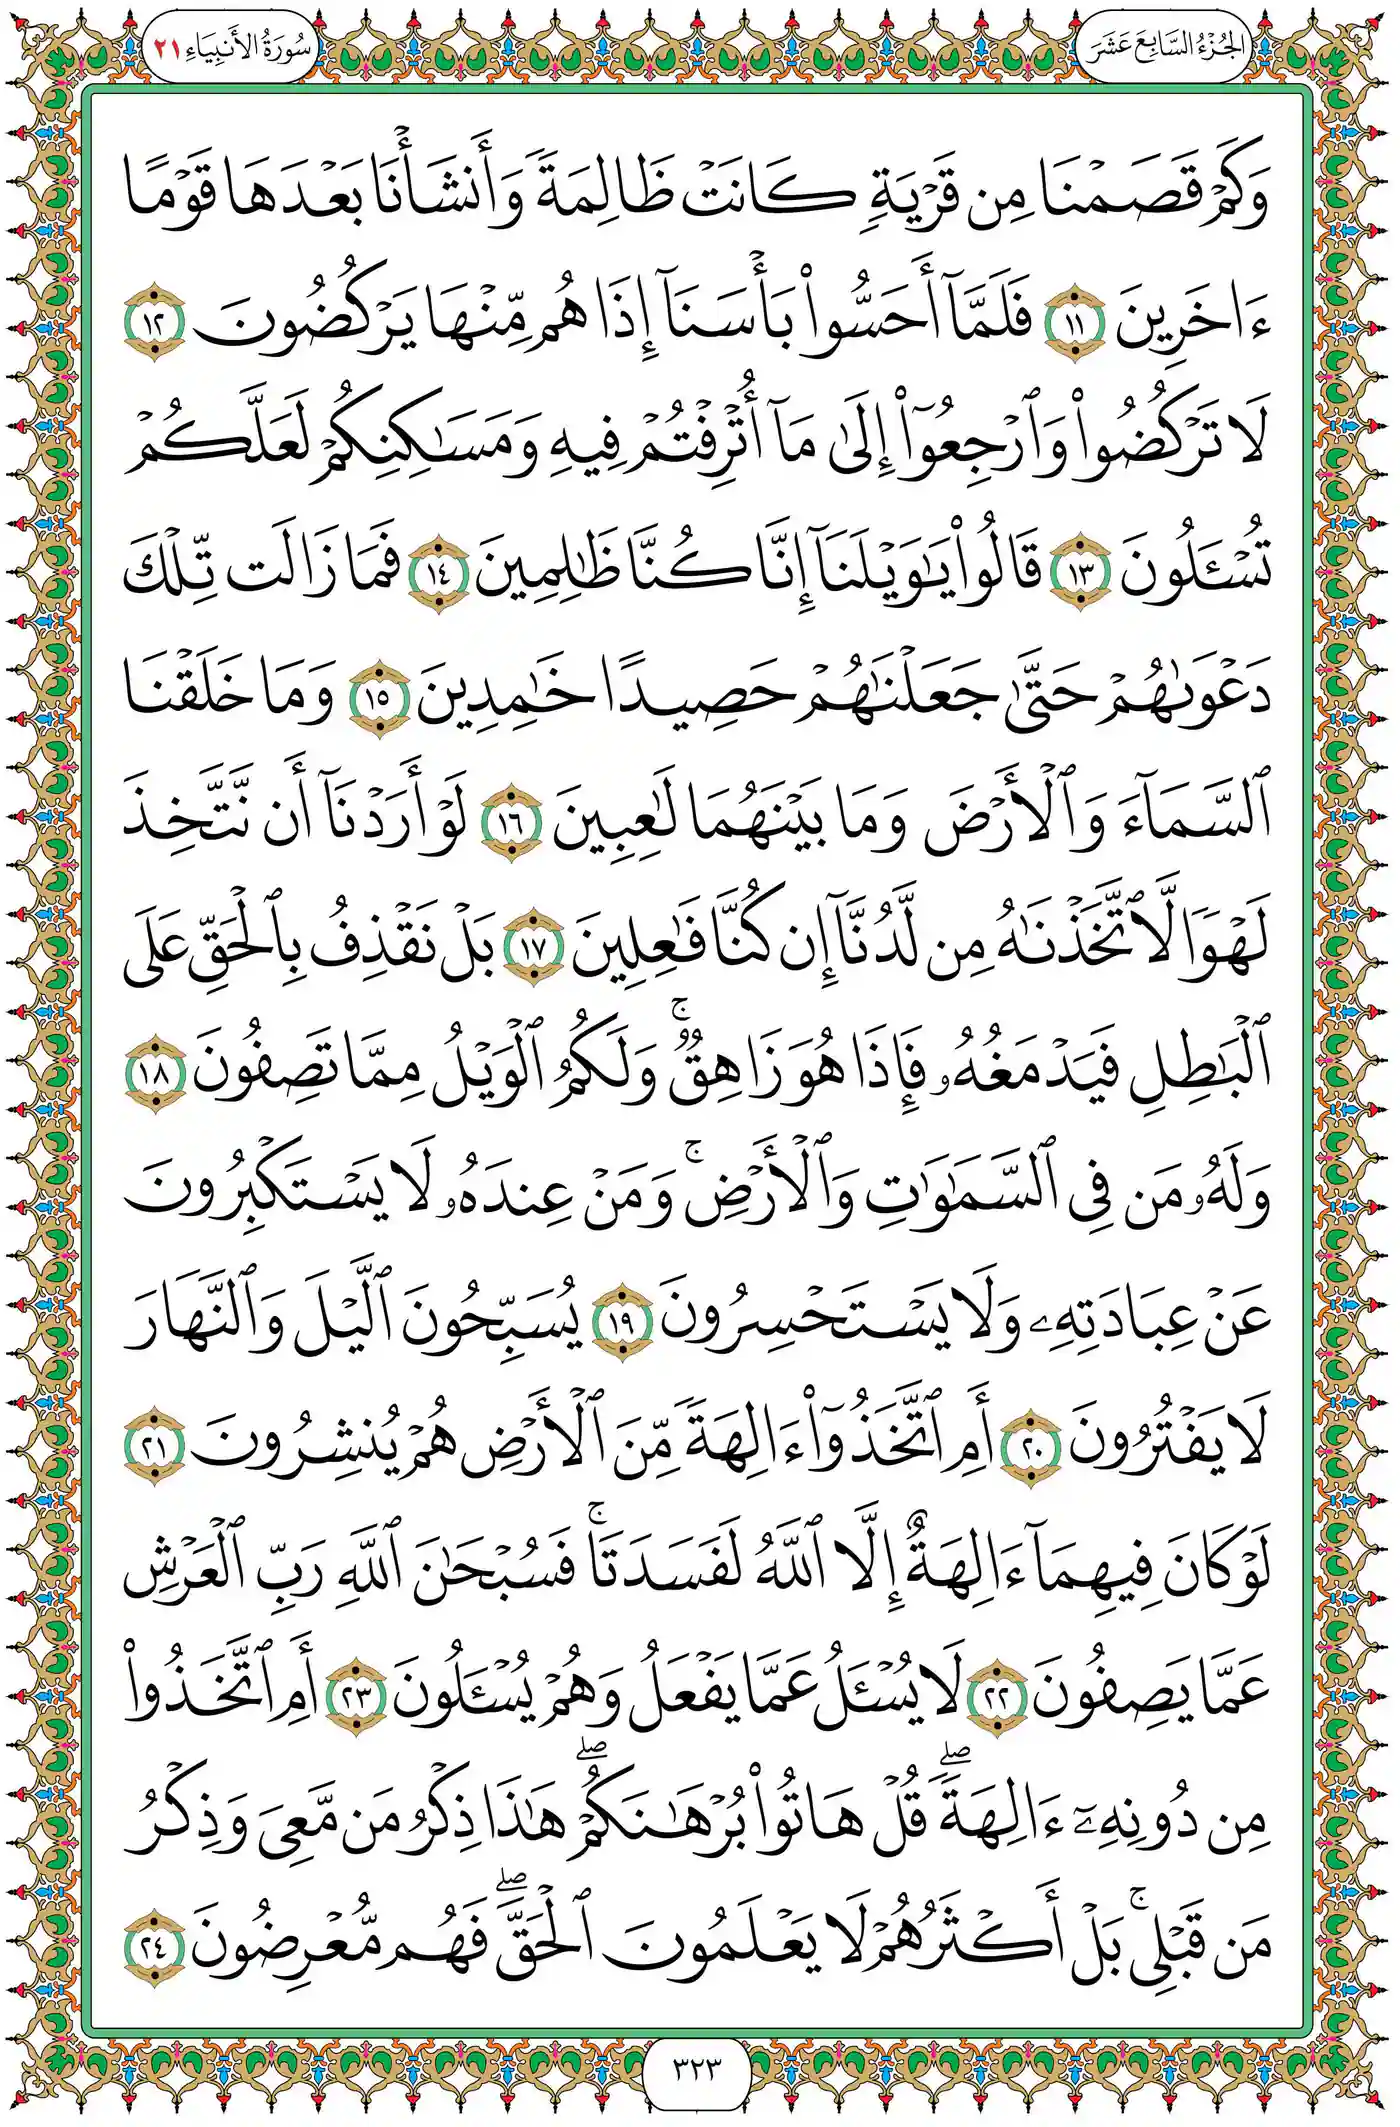 الجُزْءُ السَّابِعَ عَشَرَ
سُورَةُ الأَنبِيَاءِ ٢١
وَكَمْ قَصَمْنَا مِن قَرْيَةٍ كَانَتْ ظَالِمَةً وَأَنشَأْنَا بَعْدَهَا قَوْمًا
ءَاخَرِينَ ١١ فَلَمَّآ أَحَسُّوا۟ بَأْسَنَآ إِذَا هُم مِّنْهَا يَرْكُضُونَ ١٢
لَا تَرْكُضُوا۟ وَٱرْجِعُوٓا۟ إِلَىٰ مَآ أُتْرِفْتُمْ فِيهِ وَمَسَـٰكِنِكُمْ لَعَلَّكُمْ
تُسْـَٔلُونَ ١٣ قَالُوا۟ يَـٰوَيْلَنَآ إِنَّا كُنَّا ظَـٰلِمِينَ ١٤ فَمَا زَالَت تِّلْكَ
دَعْوَىٰهُمْ حَتَّىٰ جَعَلْنَـٰهُمْ حَصِيدًا خَـٰمِدِينَ ١٥ وَمَا خَلَقْنَا
ٱلسَّمَآءَ وَٱلْأَرْضَ وَمَا بَيْنَهُمَا لَـٰعِبِينَ ١٦ لَوْ أَرَدْنَآ أَن نَّتَّخِذَ
لَهْوًا لَّٱتَّخَذْنَـٰهُ مِن لَّدُنَّآ إِن كُنَّا فَـٰعِلِينَ ١٧ بَلْ نَقْذِفُ بِٱلْحَقِّ عَلَى
ٱلْبَـٰطِلِ فَيَدْمَغُهُۥ فَإِذَا هُوَ زَاهِقٌ ۚ وَلَكُمُ ٱلْوَيْلُ مِمَّا تَصِفُونَ ١٨
وَلَهُۥ مَن فِى ٱلسَّمَـٰوَٰتِ وَٱلْأَرْضِ ۚ وَمَنْ عِندَهُۥ لَا يَسْتَكْبِرُونَ
عَنْ عِبَادَتِهِۦ وَلَا يَسْتَحْسِرُونَ ١٩ يُسَبِّحُونَ ٱلَّيْلَ وَٱلنَّهَارَ
لَا يَفْتُرُونَ ٢٠ أَمِ ٱتَّخَذُوٓا۟ ءَالِهَةً مِّنَ ٱلْأَرْضِ هُمْ يُنشِرُونَ ٢١
لَوْ كَانَ فِيهِمَآ ءَالِهَةٌ إِلَّا ٱللَّهُ لَفَسَدَتَا ۚ فَسُبْحَـٰنَ ٱللَّهِ رَبِّ ٱلْعَرْشِ
عَمَّا يَصِفُونَ ٢٢ لَا يُسْـَٔلُ عَمَّا يَفْعَلُ وَهُمْ يُسْـَٔلُونَ ٢٣ أَمِ ٱتَّخَذُوا۟
مِن دُونِهِۦٓ ءَالِهَةً ۖ قُلْ هَاتُوا۟ بُرْهَـٰنَكُمْ ۖ هَـٰذَا ذِكْرُ مَن مَّعِىَ وَذِكْرُ
مَن قَبْلِى ۚ بَلْ أَكْثَرُهُمْ لَا يَعْلَمُونَ ٱلْحَقَّ ۖ فَهُم مُّعْرِضُونَ ٢٤
٣٢٣